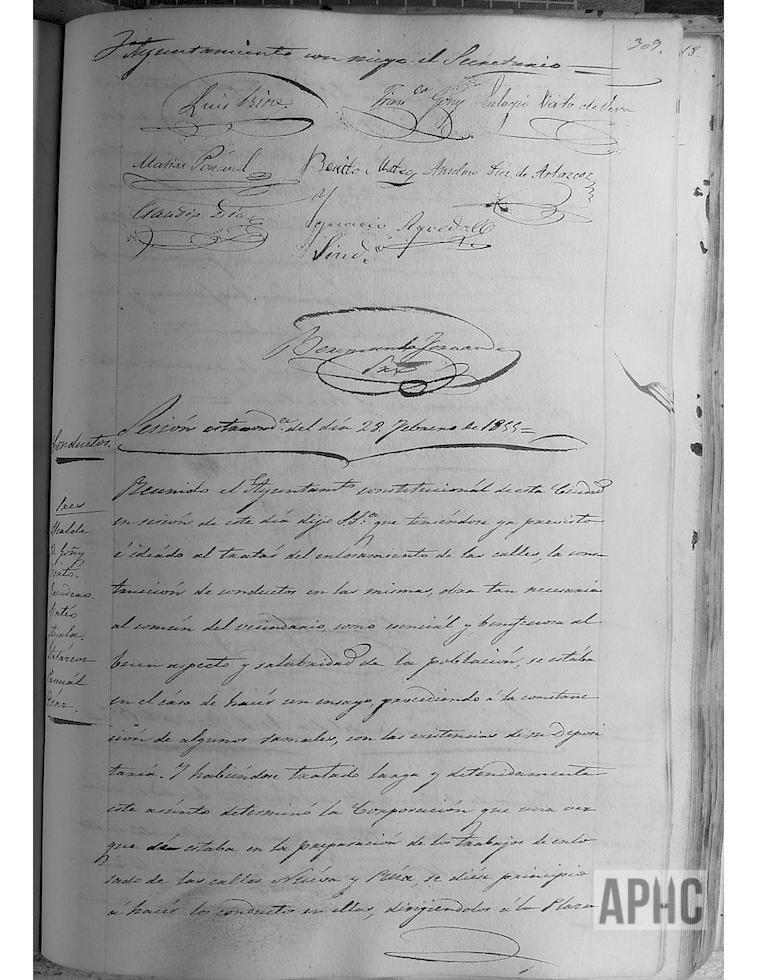 309.
18.
Ayuntamiento con migo el Secretario =
Luis
Fran.co Goñy Eulogio
Matias Pascual Benito Mateo Anselmo Diez de Artazcoz
Claudio Diaz
Ygnacio Agueda
Sind.o
Beremundo
Sesión estraord.a del día 28. Febrero de 1855 =
Conductos.
Sres
Alcalde
Goñy
Mateo
Artázcoz
Pascuál
Diaz.
Reunido el Ayuntam.to constitucionál de esta Ciudad
en sesión de este día dijo S.S.a que teniéndose ya previsto
é ideádo al tratár del enlosamiento de las calles, la cons
trucción de conductos en las mismas, obra tan necesaria
al común del vecindario, como esenciál y benefiosa al
buen aspecto y salubridad de la población, se estába
en el cáso de hacér un ensayo, procediendo á la construc
ción de algunos ramales, con las existencias de su Deposi
taría. Y habiéndose tratado larga y detenidamente
este asúnto determinó la Corporación que una vez
que se estaba en la preparación de los trabajos de enlo
sado de las calles Nueva y Rúa, se diese principio
á hacér los conductos en ellas, dirigiendolos á la Plaza
APHC